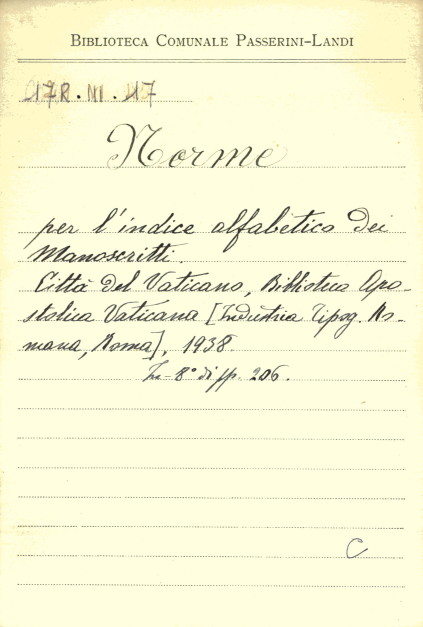 BIBLIOTECA COMUNALE PASSERINI-LANDI
17R. III. 17
Norme
per l'indice alfabetico dei
Manoscritti.
Città del Vaticano, Biblioteca Apo-
stolica Vaticana [Industria Tipog. Ro-
mana, Roma], 1938.
In-8° di pp. 206.
C